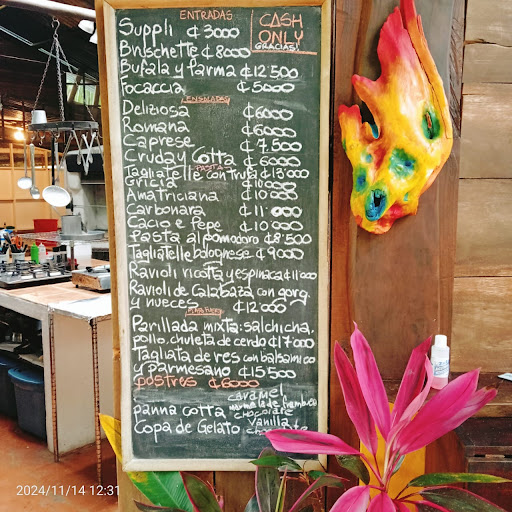 ENTRADAS
Suppli ₡3000
CASH
ONLY
GRACIAS!
Bruschette ₡8000
Bufala y Parma ₡12'500
Focaccia ₡5000
ENSALADAS
Deliziosa ₡6000
Romana ₡6000
Caprese ₡7.500
Cruda y Cotta ₡6000
PASTAS
Tagliatelle con trufa ₡13'000
Gricia ₡10'000
Amatriciana ₡10'000
Carbonara ₡11'000
Cacio e Pepe ₡10'000
Pasta al pomodoro ₡8'500
Tagliatelle bolognese ₡9000
Ravioli ricotta y espinaca ₡11000
Ravioli de Calabaza con gorg.
y nueces ₡12'000
Parillada mixta: salchicha,
pollo, chuleta de cerdo ₡17'000
Tagliata de res con balsamico
y parmesano ₡15'500
postres ₡6000
caramel
marmelade frambuesa
panna cotta chocolate
Copa de Gelato vanilla
2024/11/14 12:31